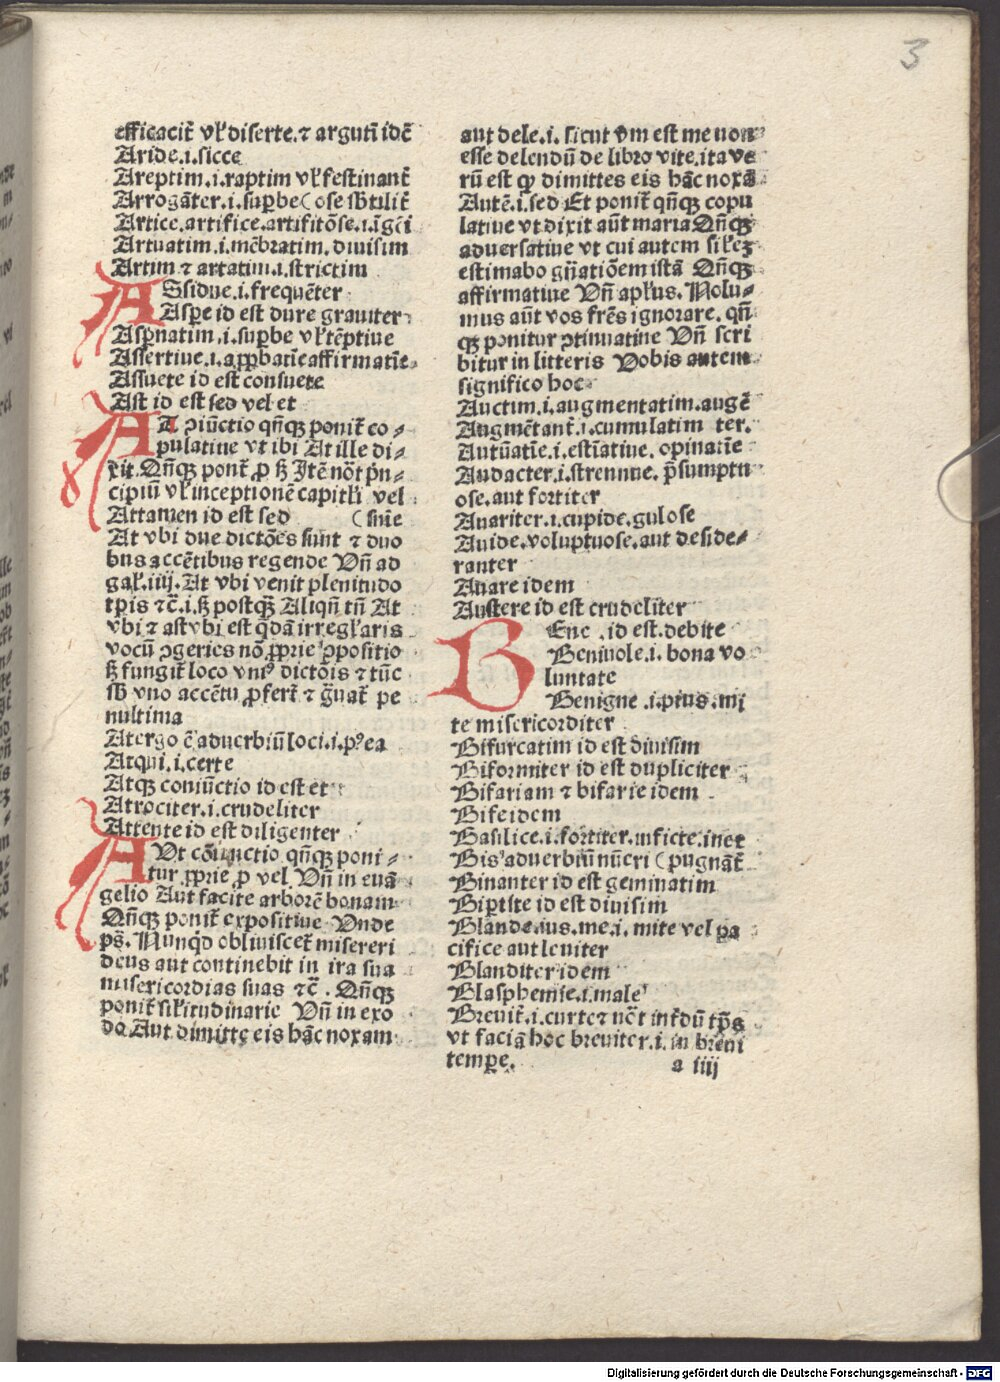 3
efficacit̃ vl̕ diserte.⁊ argutĩ idẽ
Aride.i.sicce
Areptim.i.raptim vl̕ festinant̃
Arrogãter.i.suꝑbe (ose sb̃tilit̃
Artice.artifice.artifitõse.i.ĩgẽi
Artuatim.i.mẽbratim.diuisim
Artim ⁊ artatim.i.strictim
ASsidue.i.frequẽter
Asꝑe id est dure grauiter
Asꝑnatim.i.suꝑbe vl̕ tẽptiue
Assertiue.i.aꝓbatie affirmatiẽ
Assuete id est consuete
Ast id est sed vel et
AT ꝯiũctio qñqꝫ ponit̃ co⸗
pulatiue vt ibi At ille di⸗
xit. Qñqꝫ pont̃ ꝓ sꝫ Itẽ nõt pri̇n⸗
cipiũ vl̕ inceptionẽ capitl̕i vel
Attamen id est sed (sniẽ
At vbi due dictõẽs sunt ⁊ duo
bus accẽtibus regende Vñ ad
gal̕.iiij. At vbi venit plenitudo
tp̃is ⁊c̃.i.sꝫ postqꝫ̃ Aliqñ tñ At
vbi ⁊ astvbi est q̃dã irregl̕aris
vocũ ꝯgeries nõ ꝓprie ꝓpositio
sꝫ fungit̃ loco vni⁹ dictõis ⁊ tũc
sb̃ vno accẽtu ꝓfert̃ ⁊ g̃uat̃ pe
nultima
Atergo ẽ aduerbiũ loci.i.p⁹ ea
Atqui.i.certe
Atqꝫ coniũctio id est et
Atrociter.i.crudeliter
Attente id est diligenter
AUt cõiunctio qñqꝫ poni⸗
tur ꝓprie ꝓ vel Vñ in euã
gelio Aut facite arborẽ bonam
Qñqꝫ ponit̃ expositiue Vnde
ps̃. Nunqd̃ obliuiscet̃ misereri
deus aut continebit in ira sua
misericordias suas ⁊c̃. Qñqꝫ
ponit̃ sil̕itudinarie Vñ in exo
do Aut dimitte eis hãc noxam
aut dele.i.sicut v̕m est me non
esse delendũ de libro vite.ita ve
rũ est qꝙ dimittes eis hãc noxã
Autẽ.i.sed Et ponit̃ qñqꝫ copu
latiue vt dixit aũt maria Qñqꝫ
aduersatiue vt cui autem sil̕eꝫ
estimabo gñatiõem istã Qñqꝫ
affirmatiue Vñ apl̕us. Nolu⸗
mus aũt vos fr̃es ignorare. qñ
qꝫ ponitur ꝯtinuatiue Vñ scri
bitur in litteris Vobis autem
significo hoc
Auctim.i.augmentatim.augẽ
Augmẽtant̃.i.cumulatim ter.
Autũatiẽ.i.estĩatiue. opinatiẽ
Audacter.i.strennue. p̃sumptu
ose.aut fortiter
Auariter.i.cupide.gulose
Auide.voluptuose.aut deside⸗
ranter
Auare idem
Austere id est crudeliter
BEne .id est.debite
Beniuole.i. bona vo
luntate
Benigne .i.pius.mi
te misericorditer
Bifurcatim id est diuisim
Biformiter id est dupliciter
Bifariam ⁊ bifarie idem
Bife idem
Basilice.i.fortiter.inficte.inet
Bis aduerbiũ nũeri (pugnãt̃
Binanter id est geminatim
Biꝑtite id est diuisim
Blande.ius.me.i. mite vel pa
cifice aut leniter
Blanditer idem
Blasphemie.i.male
Breuit̃.i.curte⁊ nõt int̃dũ tp̃s
vt faciã hoc breuiter.i. in breui
temꝑe.
a iiij
Digitalisierung gefördert durch die Deutsche Forschungsgemeinschaft - DFG